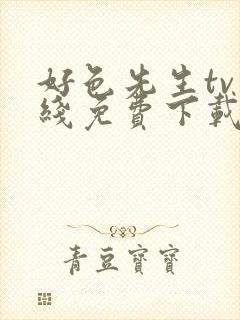 好色先生tv
綫免費下載
青豆寶寶